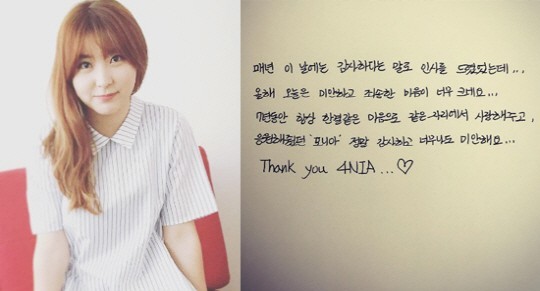 매년 이 날에는 감사하다는 말로 인사를 드렸었는데...
올해 오늘은 미안하고 죄송한 마음이 너무 크네요...
7년동안 항상 한결같은 마음으로 같은 자리에서 사랑해주고,
응원해줬던 '포니아' 정말 감사하고 너무나도 미안해요...
Thank you 4NIA ...♡